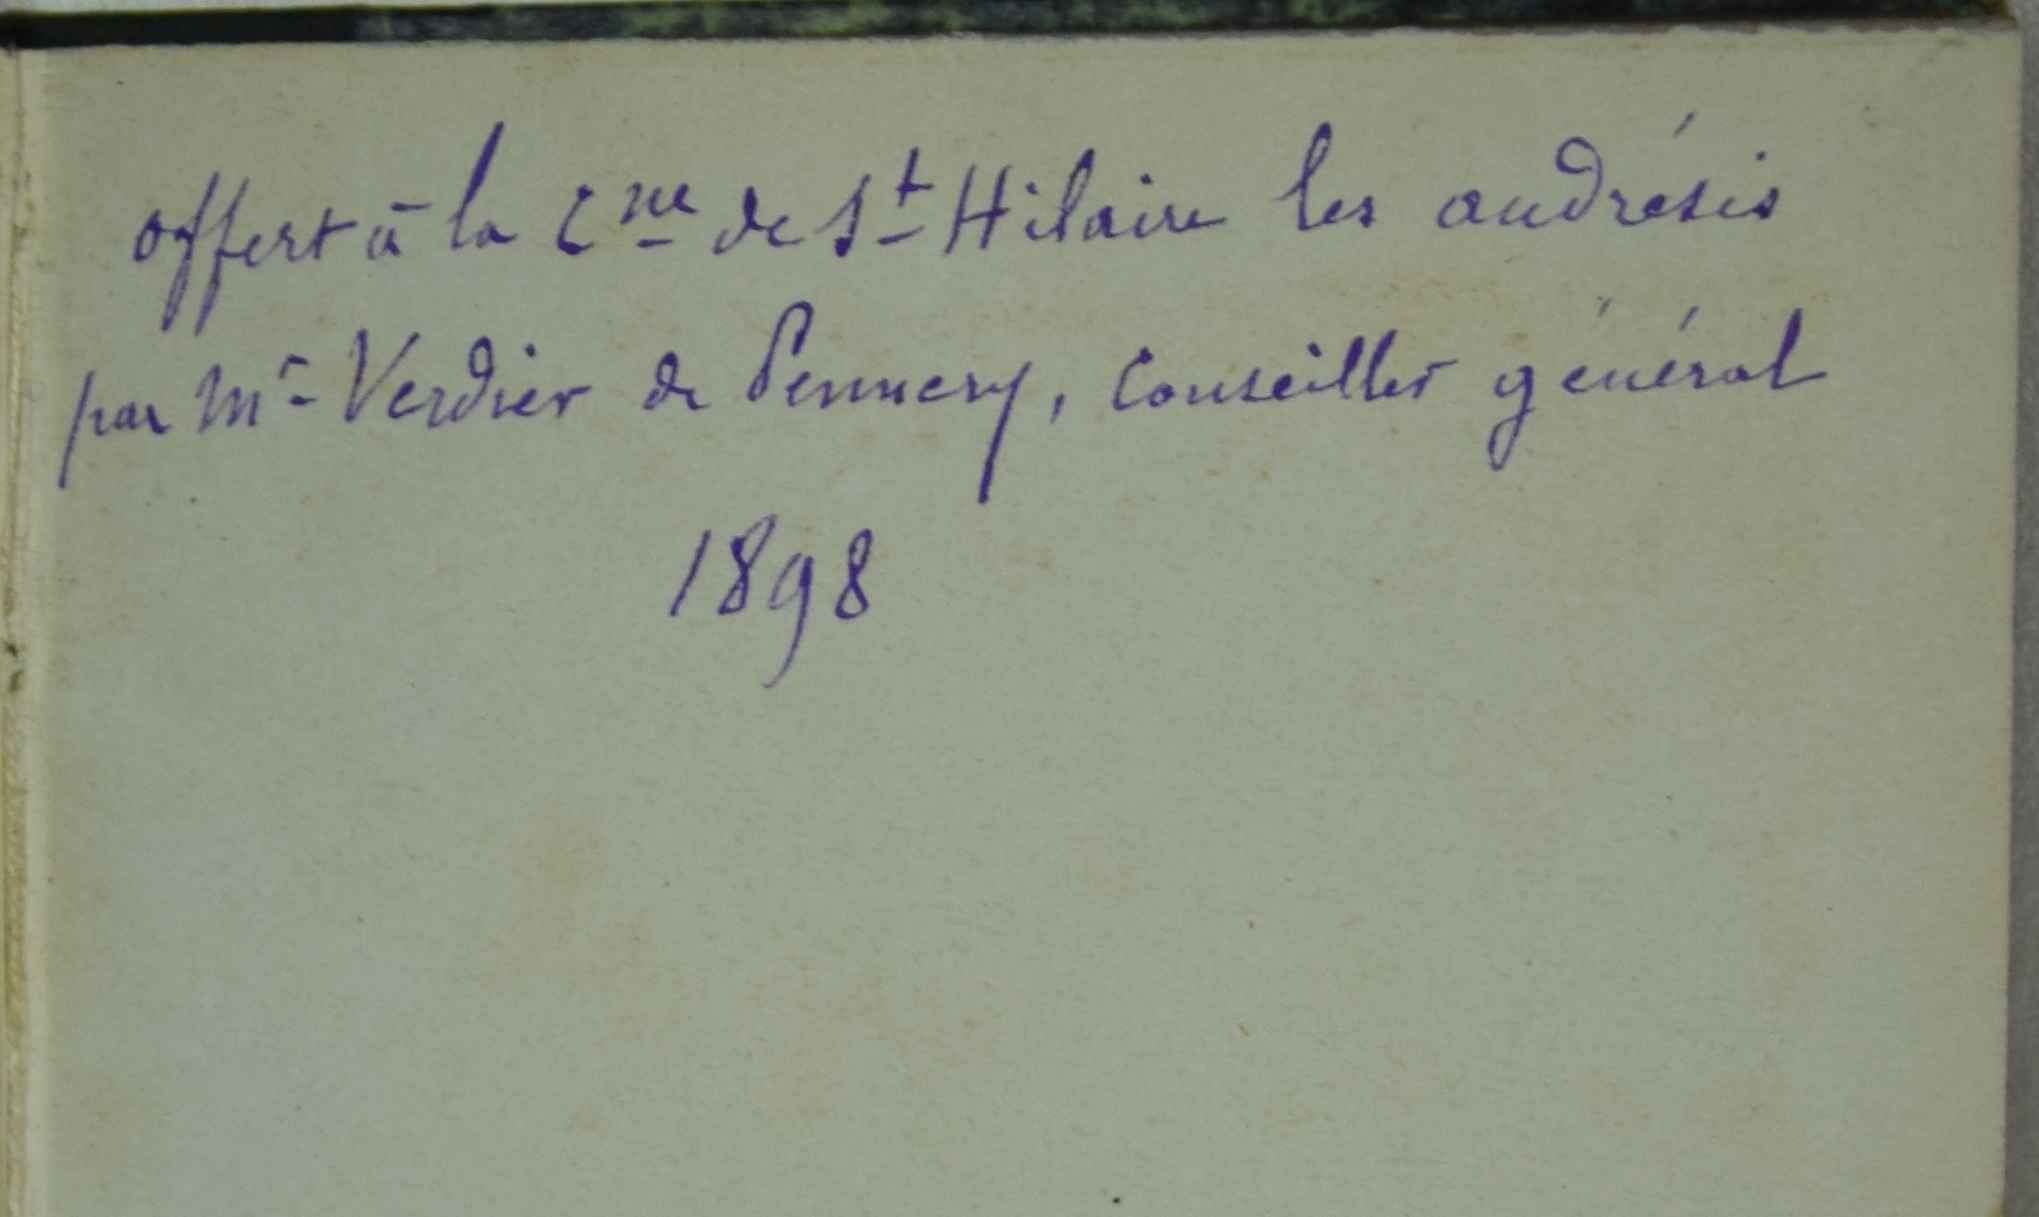 offert à la Cne de St Hilaire les andrésis
par Mr Verdier de Pennery, Conseiller général
1898